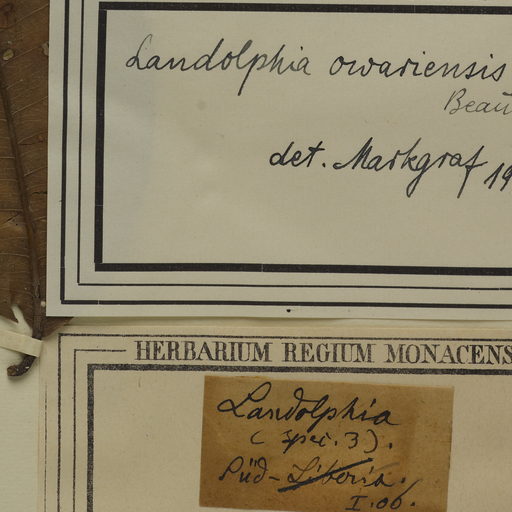 Landolphia owariensis
Beau
det. Markgraf 19
HERBARIUM REGIUM MONACENS
Landolphia
(spec. 3).
Süd-Liberia.
I.06.